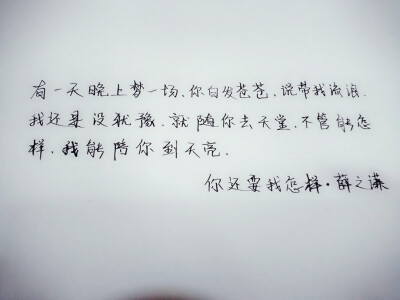 有一天晚上梦一场，你白发苍苍，说带我流浪，
我还是没犹豫，就随你去天堂，不管能怎
样，我能陪你到天亮，
你还要我怎样·薛之谦